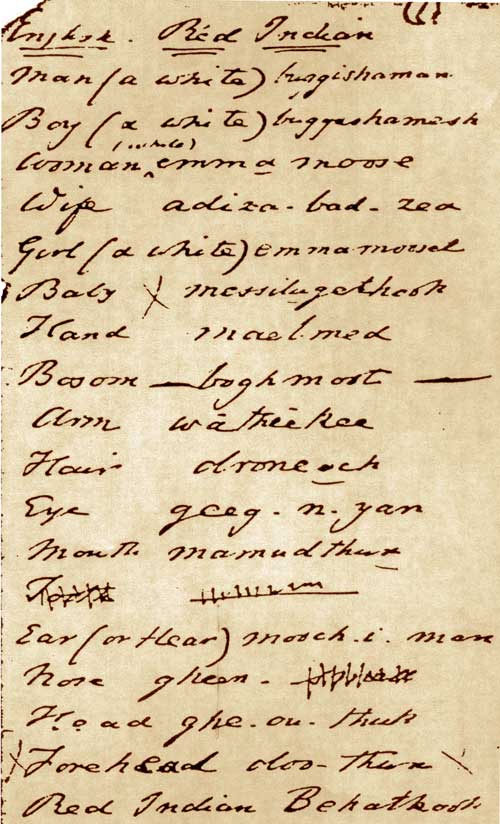 English. Réd Indian
Man (a white) bugishaman
Boy (a white) buggishamesh
(white)
Woman emma moose
Wife adiza-bad-zea
Girl (a white) emmamoosel
Baby X messilugethook
Hand maelmed
Bosom — boghmost —
Arm wātheēkee
Hair droneoch
Eye geeg-n-yan
Mouth mamudthux
Ear (or Hear) mooch-i-man
Nose gheen-
Head ghe-ou-thuk
X Forehead dos-thux \
Red Indian Behathook